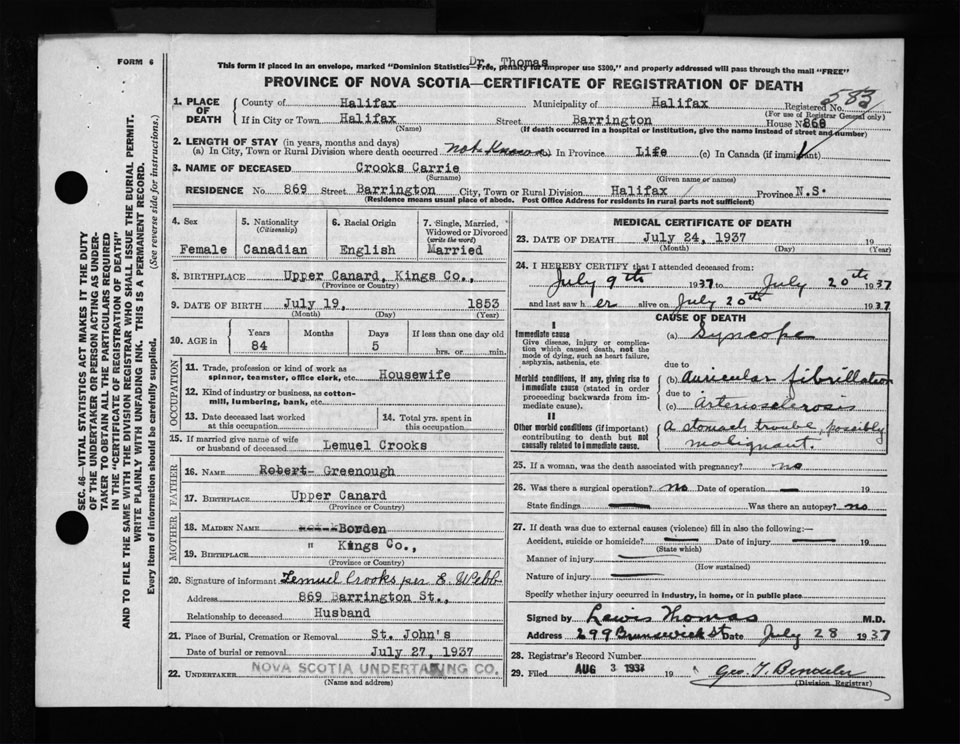 FORM 6
Dr. Thomas
This form if placed in an envelope, marked "Dominion Statistics—Free, penalty for improper use $300," and properly addressed will pass through the mail "FREE"
PROVINCE OF NOVA SCOTIA—CERTIFICATE OF REGISTRATION OF DEATH
583
1. PLACE OF DEATH County of Halifax Municipality of Halifax Registered No.
(For use of Registrar General only)
If in City or Town Halifax Street Barrington House No. 869
(Name) (If death occurred in a hospital or institution, give the name instead of street and number)
2. LENGTH OF STAY (in years, months and days)
(a) In City, Town or Rural Division where death occurred not known (b) In Province Life (c) In Canada (if immigrant)
3. NAME OF DECEASED Crooks Carrie
(Surname) (Given name or names)
RESIDENCE No. 869 Street Barrington City, Town or Rural Division Halifax Province N.S.
(Residence means usual place of abode. Post Office Address for residents in rural parts not sufficient)
4. Sex Female
5. Nationality (Citizenship) Canadian
6. Racial Origin English
7. Single, Married, Widowed or Divorced (write the word) Married
8. BIRTHPLACE Upper Canard, Kings Co.,
(Province or Country)
9. DATE OF BIRTH July 19, 1853
(Month) (Day) (Year)
10. AGE IN Years 84 Months Days 5 If less than one day old hrs. or min.
OCCUPATION
11. Trade, profession or kind of work as spinner, teamster, office clerk, etc. Housewife
12. Kind of industry or business, as cotton-mill, lumbering, bank, etc.
13. Date deceased last worked at this occupation
14. Total yrs. spent in this occupation
15. If married give name of wife or husband of deceased Lemuel Crooks
FATHER
16. NAME Robert Greenough
17. BIRTHPLACE Upper Canard
(Province or Country)
MOTHER
18. MAIDEN NAME Borden
19. BIRTHPLACE " Kings Co.,
(Province or Country)
20. Signature of informant Lemuel Crooks per E. Webb
Address 869 Barrington St.,
Relationship to deceased Husband
21. Place of Burial, Cremation or Removal St. John's
Date of burial or removal July 27, 1937
22. UNDERTAKER NOVA SCOTIA UNDERTAKING CO.
(Name and address)
MEDICAL CERTIFICATE OF DEATH
23. DATE OF DEATH July 24, 1937 19
(Month) (Day)
24. I HEREBY CERTIFY that I attended deceased from:
July 9th 1937 to July 20th 1937
and last saw h er alive on July 20th 1937
CAUSE OF DEATH
I
Immediate cause
Give disease, injury or complication which caused death, not the mode of dying, such as heart failure, asphyxia, asthenia, etc.
(a) Syncope
due to
Morbid conditions, if any, giving rise to immediate cause (stated in order proceeding backwards from immediate cause).
(b) Auricular fibrillation
due to
(c) Arteriosclerosis
II
Other morbid conditions (if important) contributing to death but not causally related to immediate cause.
A stomach trouble, possibly malignant.
25. If a woman, was the death associated with pregnancy? no
26. Was there a surgical operation? no Date of operation 19
State findings Was there an autopsy? no
27. If death was due to external causes (violence) fill in also the following:—
Accident, suicide or homicide? Date of injury 19
(State which)
Manner of injury
(How sustained)
Nature of injury
Specify whether injury occurred in industry, in home, or in public place
Signed by Lewis Thomas M.D.
Address 299 Brunswick St Date July 28 1937
28. Registrar's Record Number
29. Filed AUG 3 1937 19
(Division Registrar)
SEC. 46—VITAL STATISTICS ACT MAKES IT THE DUTY
OF THE UNDERTAKER OR PERSON ACTING AS UNDER-
TAKER TO OBTAIN ALL THE PARTICULARS REQUIRED
IN THE "CERTIFICATE OF REGISTRATION OF DEATH"
AND TO FILE THE SAME WITH THE DIVISION REGISTRAR WHO SHALL ISSUE THE BURIAL PERMIT.
WRITE PLAINLY WITH UNFADING INK. THIS IS A PERMANENT RECORD.
Every item of information should be carefully supplied. (See reverse side for instructions.)